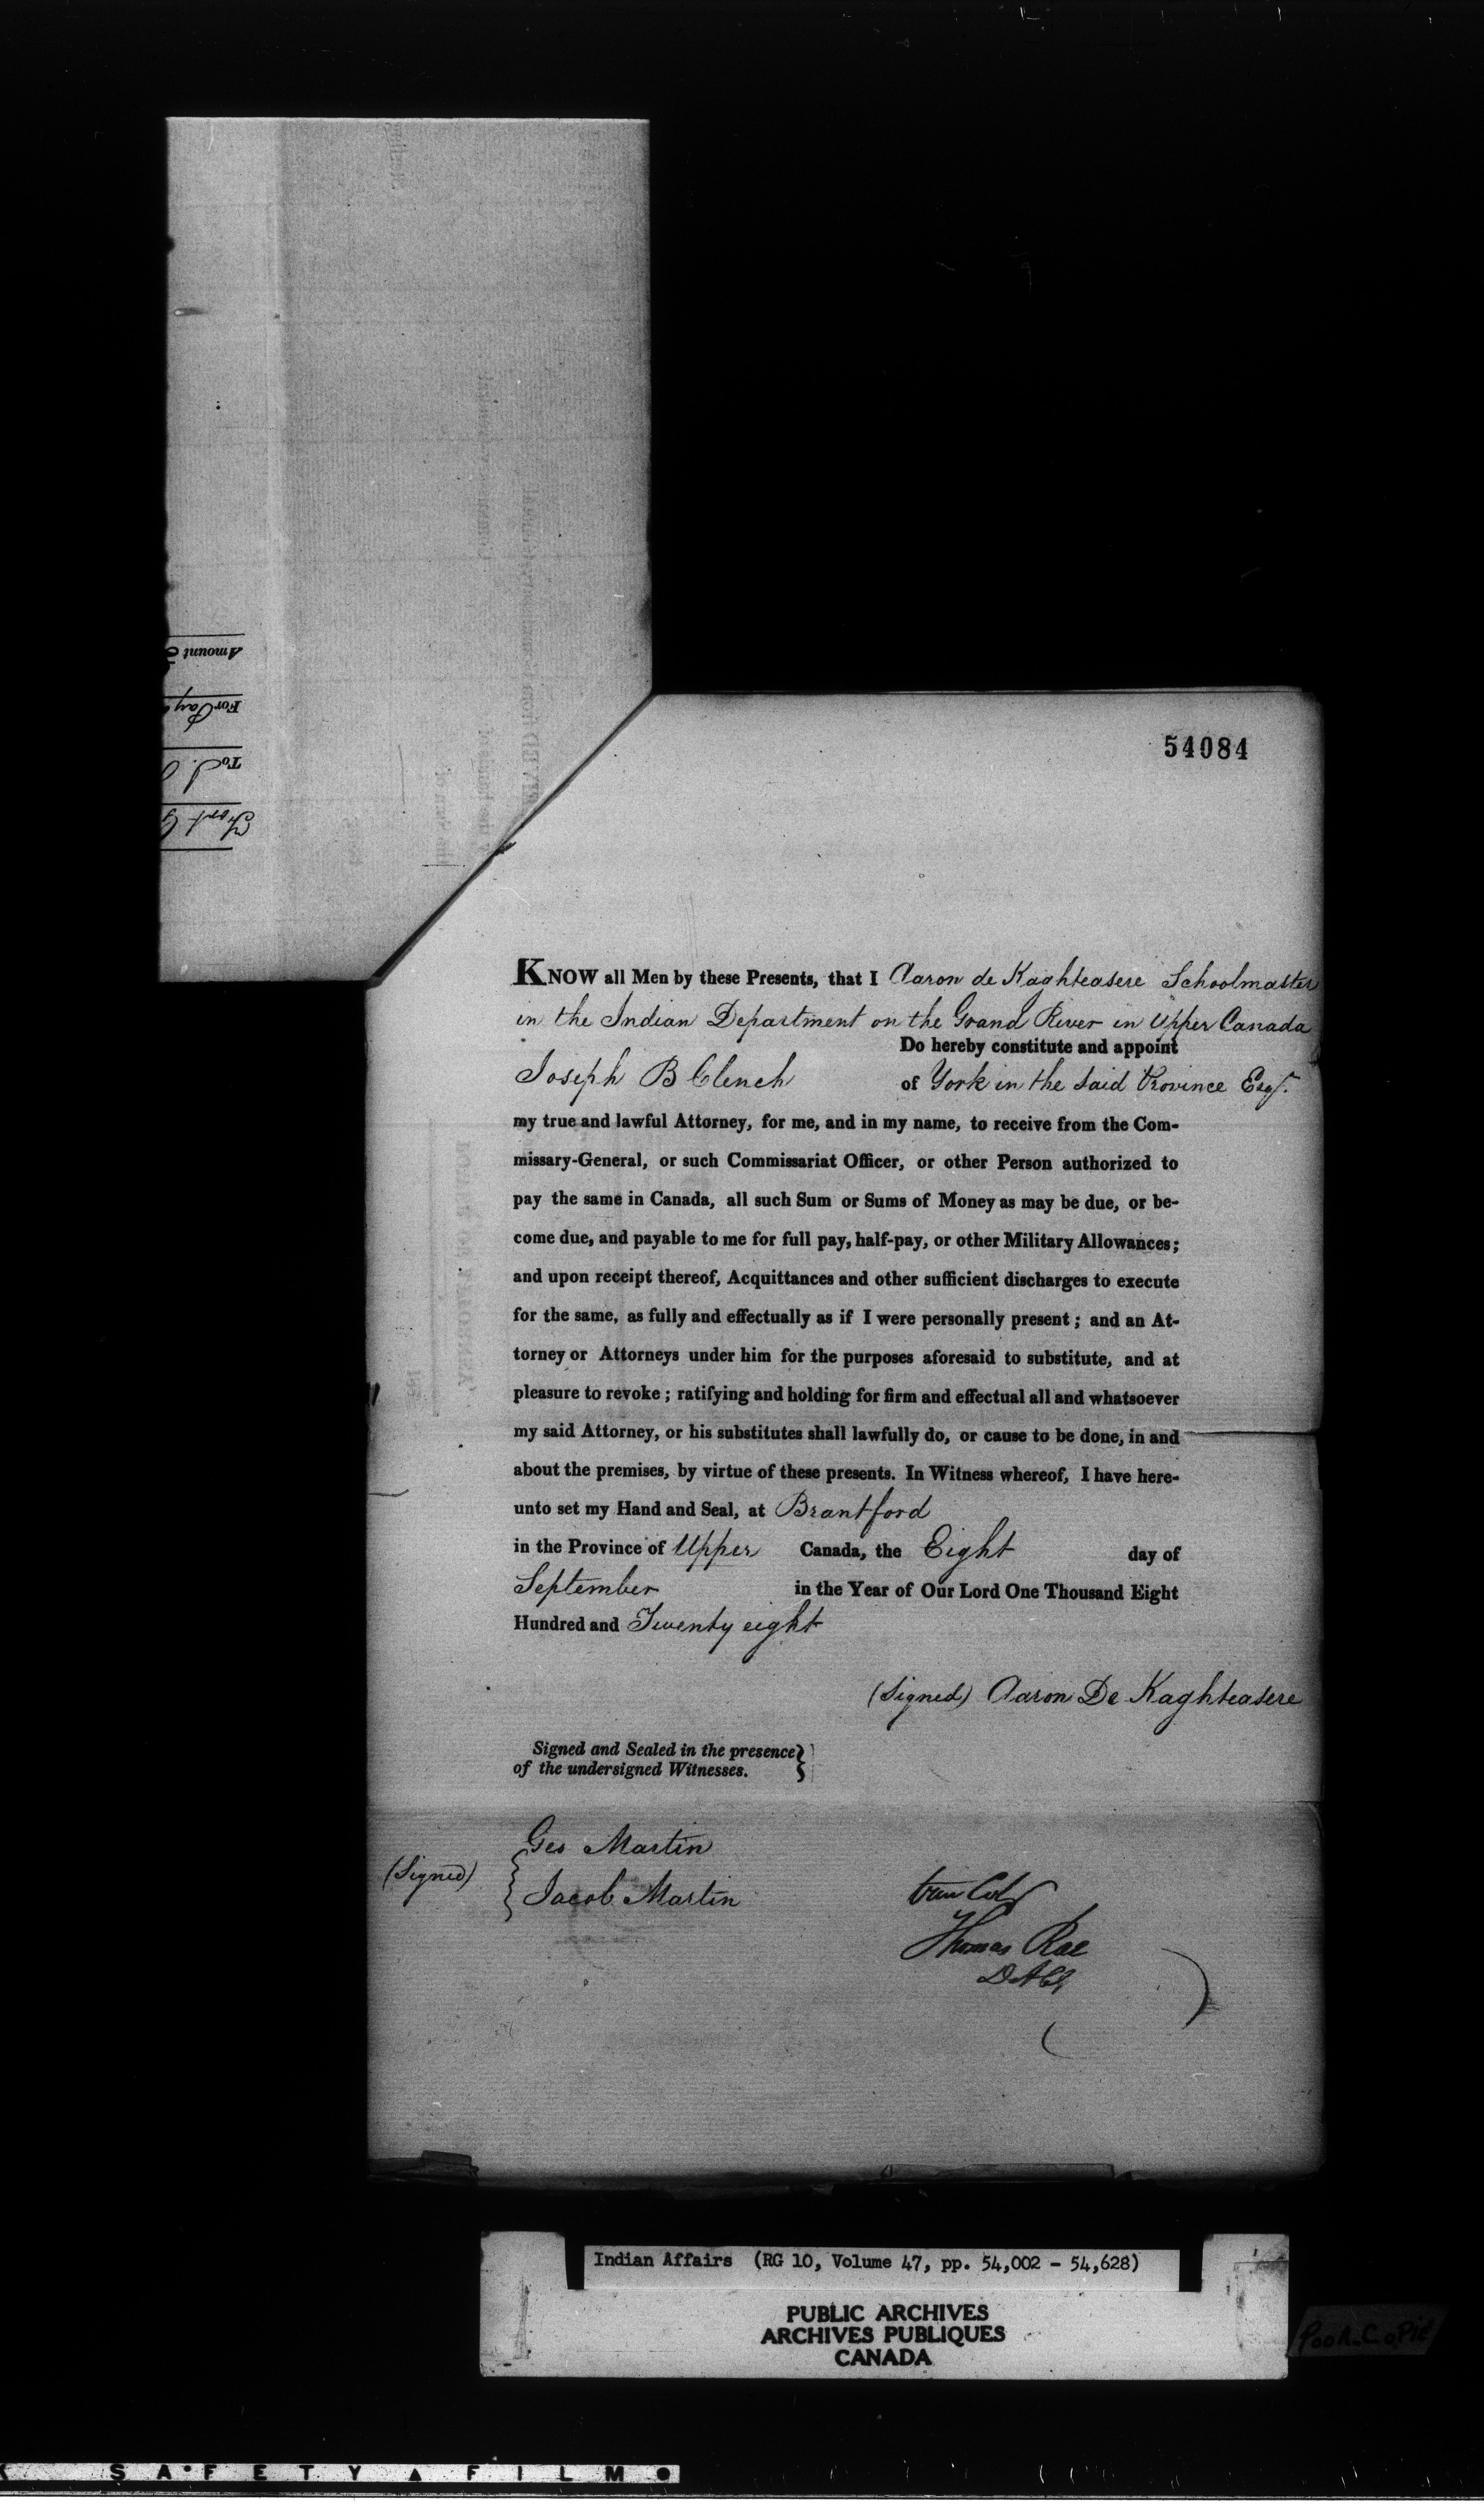 Amount
For Pay
To J.
Fort G
54084
KNOW all Men by these Presents, that I Aaron de Kaghteasere Schoolmaster
in the Indian Department on the Grand River in Upper Canada
Do hereby constitute and appoint
Joseph B Clench of York in the said Province Esqr.
my true and lawful Attorney, for me, and in my name, to receive from the Com-
missary-General, or such Commissariat Officer, or other Person authorized to
pay the same in Canada, all such Sum or Sums of Money as may be due, or be-
come due, and payable to me for full pay, half-pay, or other Military Allowances;
and upon receipt thereof, Acquittances and other sufficient discharges to execute
for the same, as fully and effectually as if I were personally present; and an At-
torney or Attorneys under him for the purposes aforesaid to substitute, and at
pleasure to revoke; ratifying and holding for firm and effectual all and whatsoever
my said Attorney, or his substitutes shall lawfully do, or cause to be done, in and
about the premises, by virtue of these presents. In Witness whereof, I have here-
unto set my Hand and Seal, at Brantford
in the Province of Upper Canada, the Eight day of
September in the Year of Our Lord One Thousand Eight
Hundred and Twenty eight
(Signed) Aaron De Kaghteasere
Signed and Sealed in the presence
of the undersigned Witnesses.
Geo Martin
(Signed)
Jacob Martin
true Copy
Thomas Rae
DACG
Indian Affairs (RG 10, Volume 47, pp. 54,002 - 54,628)
PUBLIC ARCHIVES
ARCHIVES PUBLIQUES
CANADA
POOR COPIE
SAFETY FILM